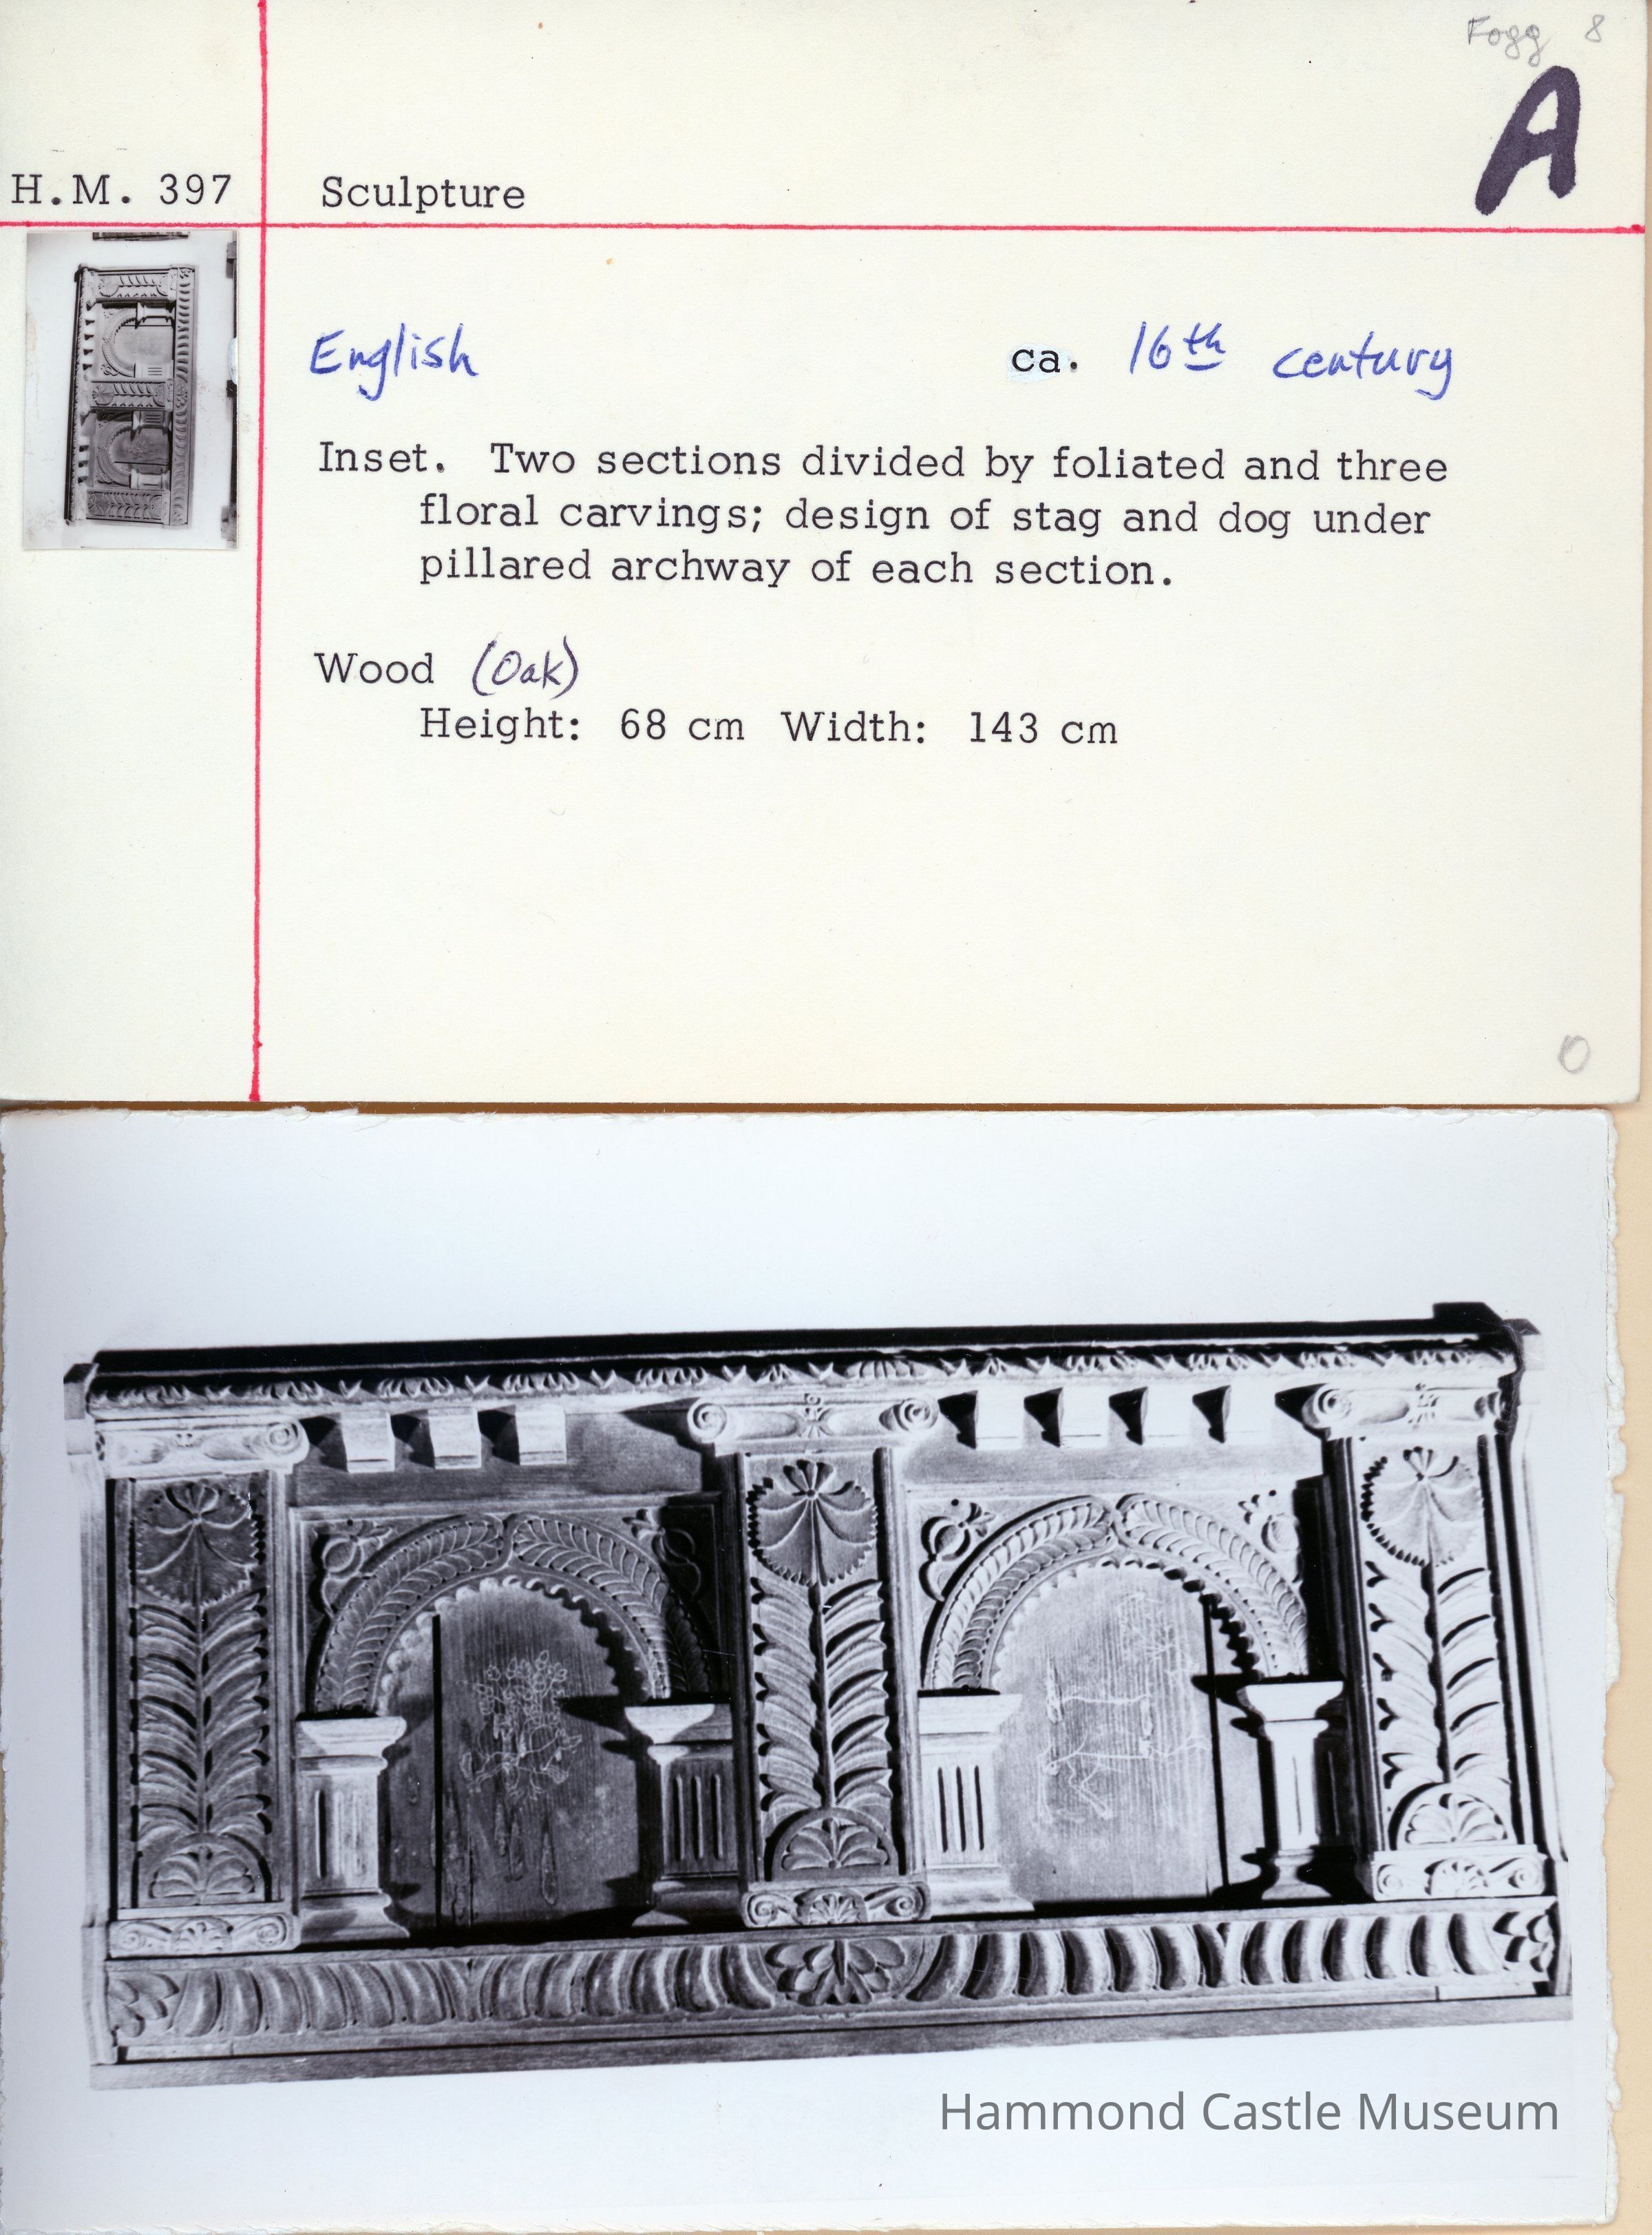 Fogg 8
A
H.M. 397
Sculpture
English
ca. 16th century
Inset. Two sections divided by foliated and three
floral carvings; design of stag and dog under
pillared archway of each section.
Wood (Oak)
Height: 68 cm Width: 143 cm
O
Hammond Castle Museum